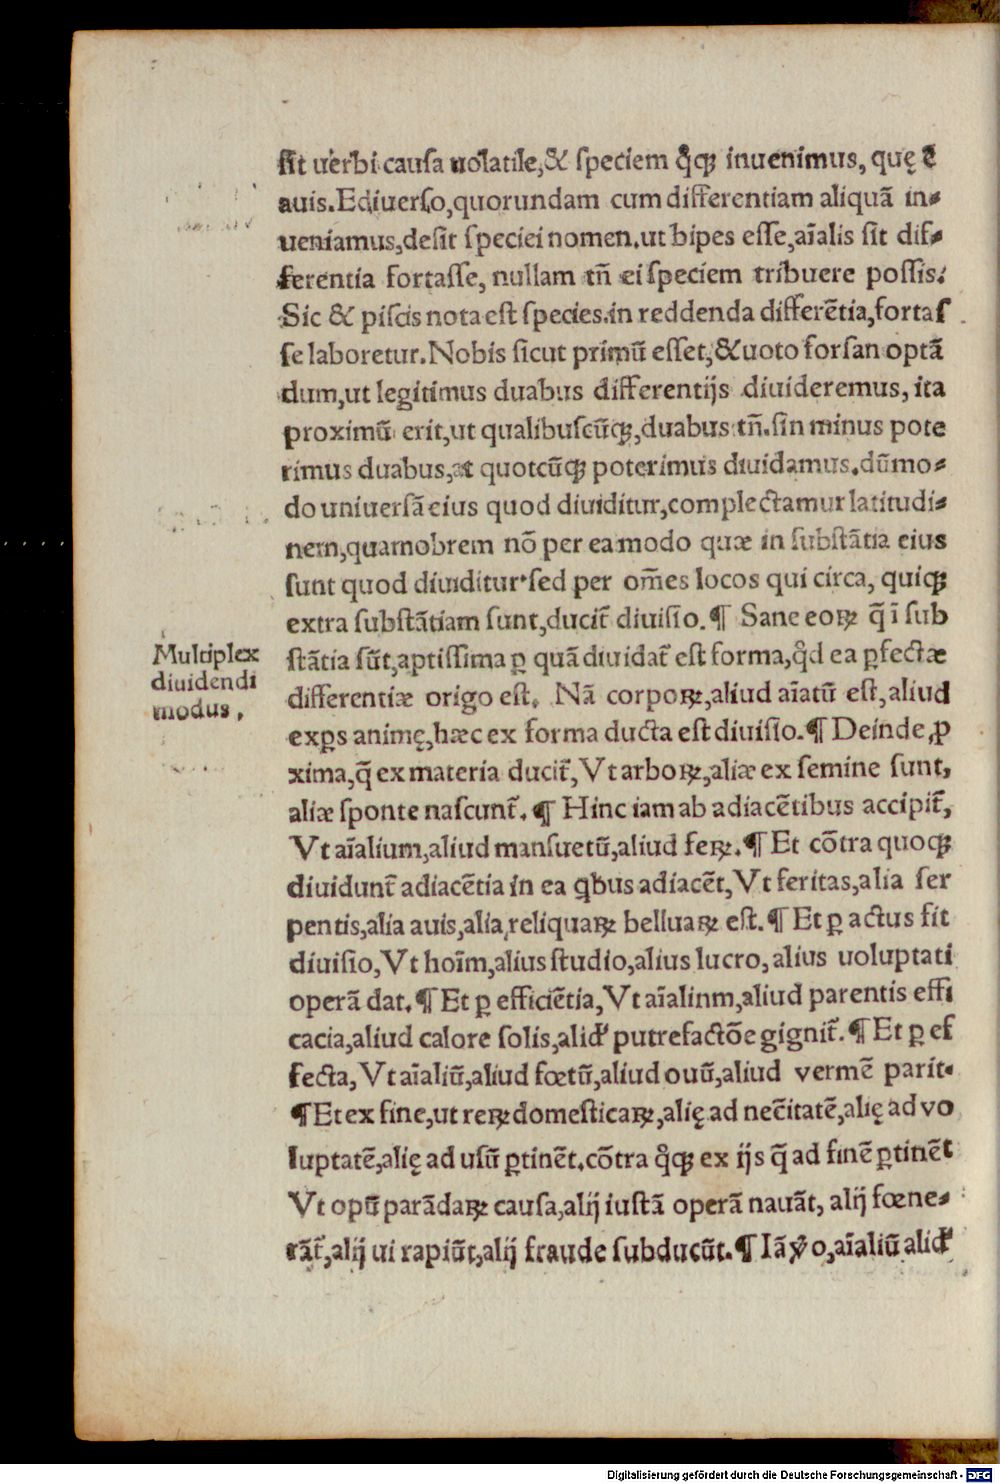 ſit uerbi cauſa uolatile,& ſpeciem q̊q̃ inuenimus, quę ē
auis.Ediuerſo,quorundam cum differentiam aliquā in-
ueniamus,deſit ſpeciei nomen.ut bipes eſſe,aīalis ſit dif-
ferentia fortaſſe, nullam tñ ei ſpeciem tribuere poſſis.
Sic & piſcis nota eſt ſpecies.in reddenda differētia,fortaſ
ſe laboretur.Nobis ſicut primū eſſet,&uoto forſan optā
dum,ut legitimus duabus differentijs diuideremus, ita
proximū erit,ut qualibuſcūqꝫ,duabus tñ.ſin minus pote
rimus duabus,at quotcūqꝫ poterimus diuidamus.dūmo-
do uniuerſā eius quod diuiditur,complectamur latitudi-
nem,quamobrem nō per ea modo quæ in ſubſtātia eius
ſunt quod diuiditur·ſed per om̄es locos qui circa, quiqꝫ
extra ſubſtātiam ſunt,ducit̃ diuiſio.¶ Sane eoꝝ q̄ ī ſub
ſtātia sūt,aptiſſima ꝑ quā diuidat̃ eſt forma,q̊d ea ꝑfectæ
differentiæ origo eſt. Nā corpoꝝ,aliud aīatū eſt,aliud
exꝑs animę,hæc ex forma ducta eſt diuiſio.¶ Deinde ꝓ
xima,q̄ ex materia ducit̃,Vt arboꝝ,aliæ ex ſemine ſunt,
aliæ ſponte naſcunt̃.¶ Hinc iam ab adiacētibus accipit̃,
Vt aīalium,aliud manſuetū,aliud feꝝ.¶ Et cōtra quoqꝫ
diuidunt̃ adiacētia in ea qbus adiacēt,Vt feritas,alia ſer
pentis,alia auis,alia reliquaꝝ belluaꝝ eſt.¶ Et ꝑ actus fit
diuiſio,Vt hoīm,alius ſtudio,alius lucro, alius uoluptati
operā dat.¶ Et ꝑ efficiētia,Vt aīalinm,aliud parentis effi
cacia,aliud calore ſolis,alid' putrefactōe gignit̃.¶ Et ꝑ ef
fecta,Vt aīaliū,aliud fœtū,aliud ouū,aliud vermē parit.
¶Et ex fine,ut reꝝ domeſticaꝝ,alię ad nec̄itatē,alię ad vo
luptatē,alię ad uſū ꝑtinēt.cōtra q̊qꝫ ex ijs q̄ ad finē ꝑtinēt
Vt opū parādaꝝ cauſa,alij iuſtā operā nauāt, alij fœne-
rāt̃,alij ui rapiūt,alij fraude ſubducūt.¶ Iā ỽo,aīaliū alid'
Multiplex
diuidendi
modus.
Digitalisierung gefördert durch die Deutsche Forschungsgemeinschaft - DFG